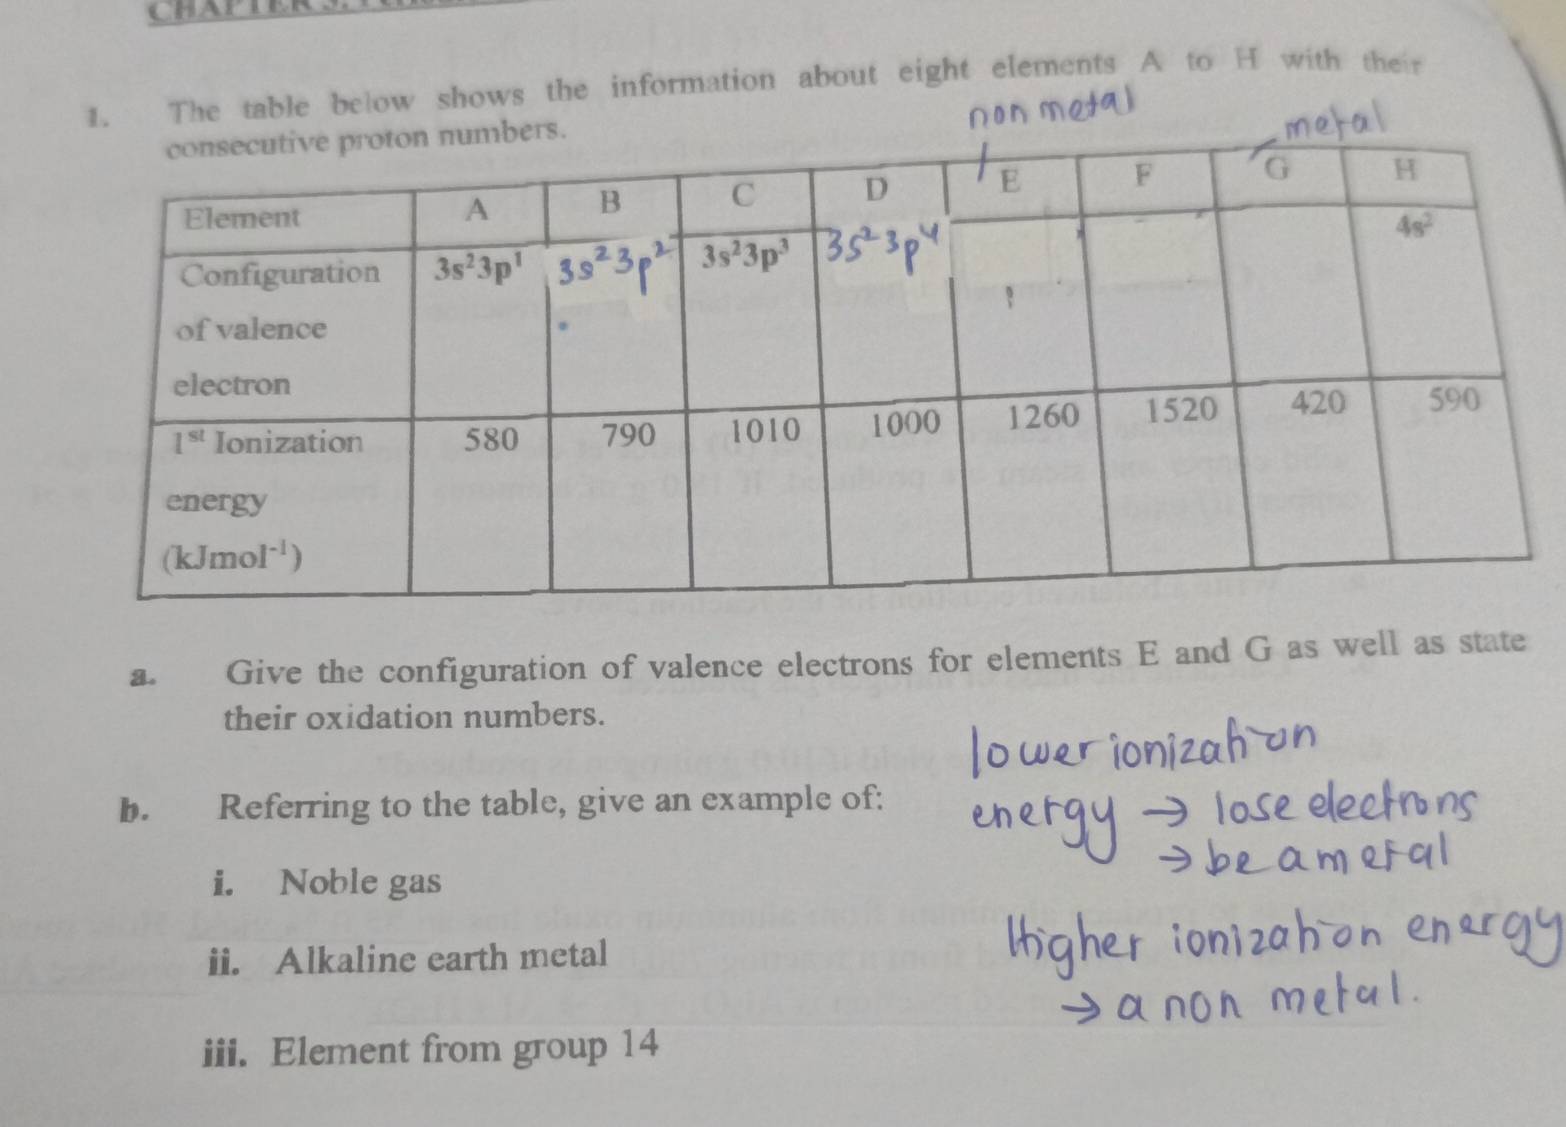 1. The table below shows the information about eight elements A to H with their
consecutive proton numbers.
non metal
metal
Element A B C D E F G H
Configuration of valence electron 3s²3p¹ 3s²3p² 3s²3p³ 3s²3p⁴ 4s²
1st Ionization energy (kJmol⁻¹) 580 790 1010 1000 1260 1520 420 590
a. Give the configuration of valence electrons for elements E and G as well as state
their oxidation numbers.
b. Referring to the table, give an example of:
i. Noble gas
ii. Alkaline earth metal
iii. Element from group 14
lower ionization
energy → lose electrons
→ be a metal
Higher ionization energy
→ a non metal.